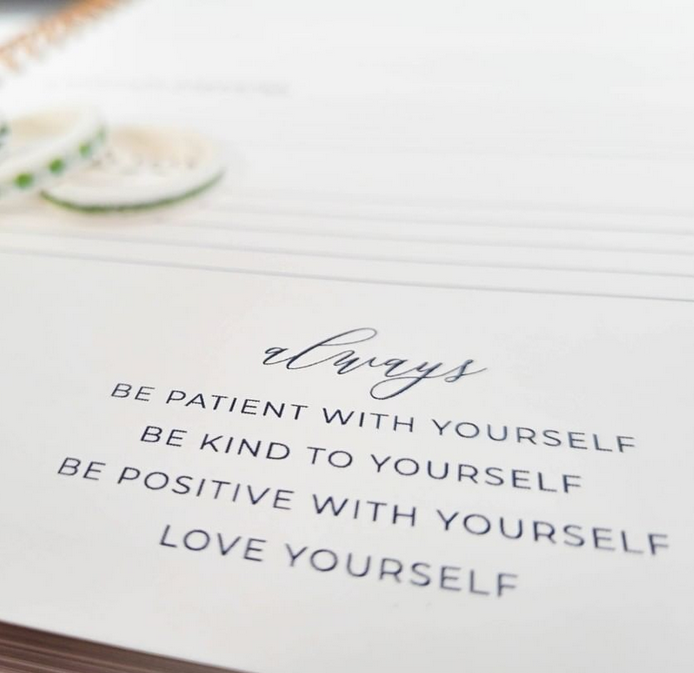 always
BE PATIENT WITH YOURSELF
BE KIND TO YOURSELF
BE POSITIVE WITH YOURSELF
LOVE YOURSELF